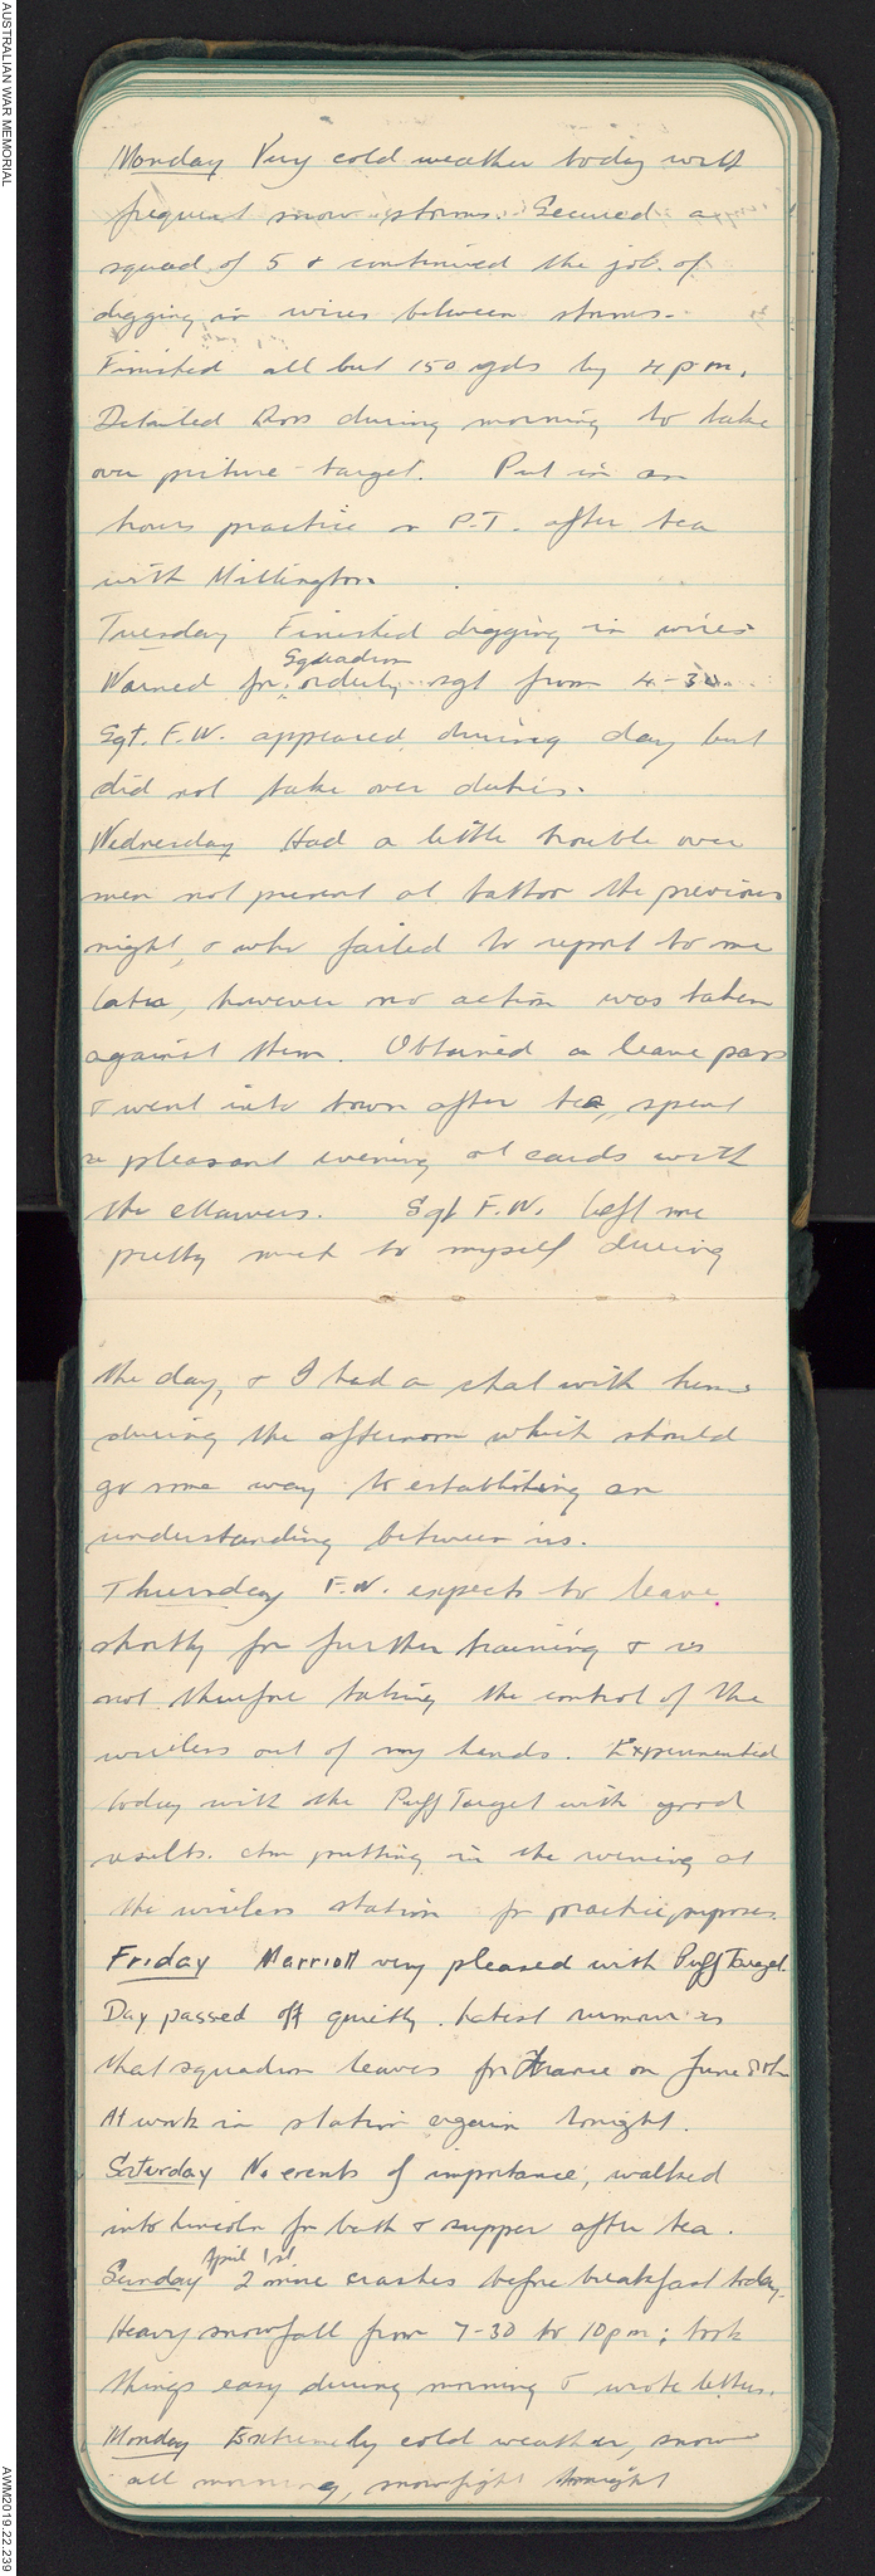 AUSTRALIAN WAR MEMORIAL
Monday Very cold weather today with
frequent snow storms. Secured a
squad of 5 & continued the job of
digging in wires between storms.
Finished all but 150 yds by 4 pm.
Detailed Ross during morning to take
over picture target. Put in an
hours practice on P.T. after tea
with Millington
Tuesday Finished digging in wires
Squadron
Warned for orderly sgt from 4-30.
Sgt. F.W. appeared during day but
did not take over duties.
Wednesday Had a little trouble over
men not present at tattoo the previous
night, & who failed to report to me
later, however no action was taken
against them. Obtained a leave pass
& went into town after tea, spent
a pleasant evening at cards with
the Mawers. Sgt F.W. left me
pretty much to myself during
the day, & I had a chat with him
during the afternoon which should
go some way to establishing an
understanding between us.
Thursday F.W. expects to leave
shortly for further training & is
not therefore taking the control of the
wireless out of my hands. Experimented
today with the Puff Target with good
results. Am putting in the evening at
the wireless station for practice purposes.
Friday Marriott very pleased with Puff Target.
Day passed off quietly. Latest rumour is
that squadron leaves for France on June
At work in station again tonight.
Saturday No events of importance, walked
into Lincoln for bath & supper after tea.
April 1st
Sunday 2 more crashes before breakfast today.
Heavy snowfall from 7-30 to 10pm; took
things easy during morning & wrote letters.
Monday Extremely cold weather, snow
all morning, snowfight tonight
AWM2019.22.239